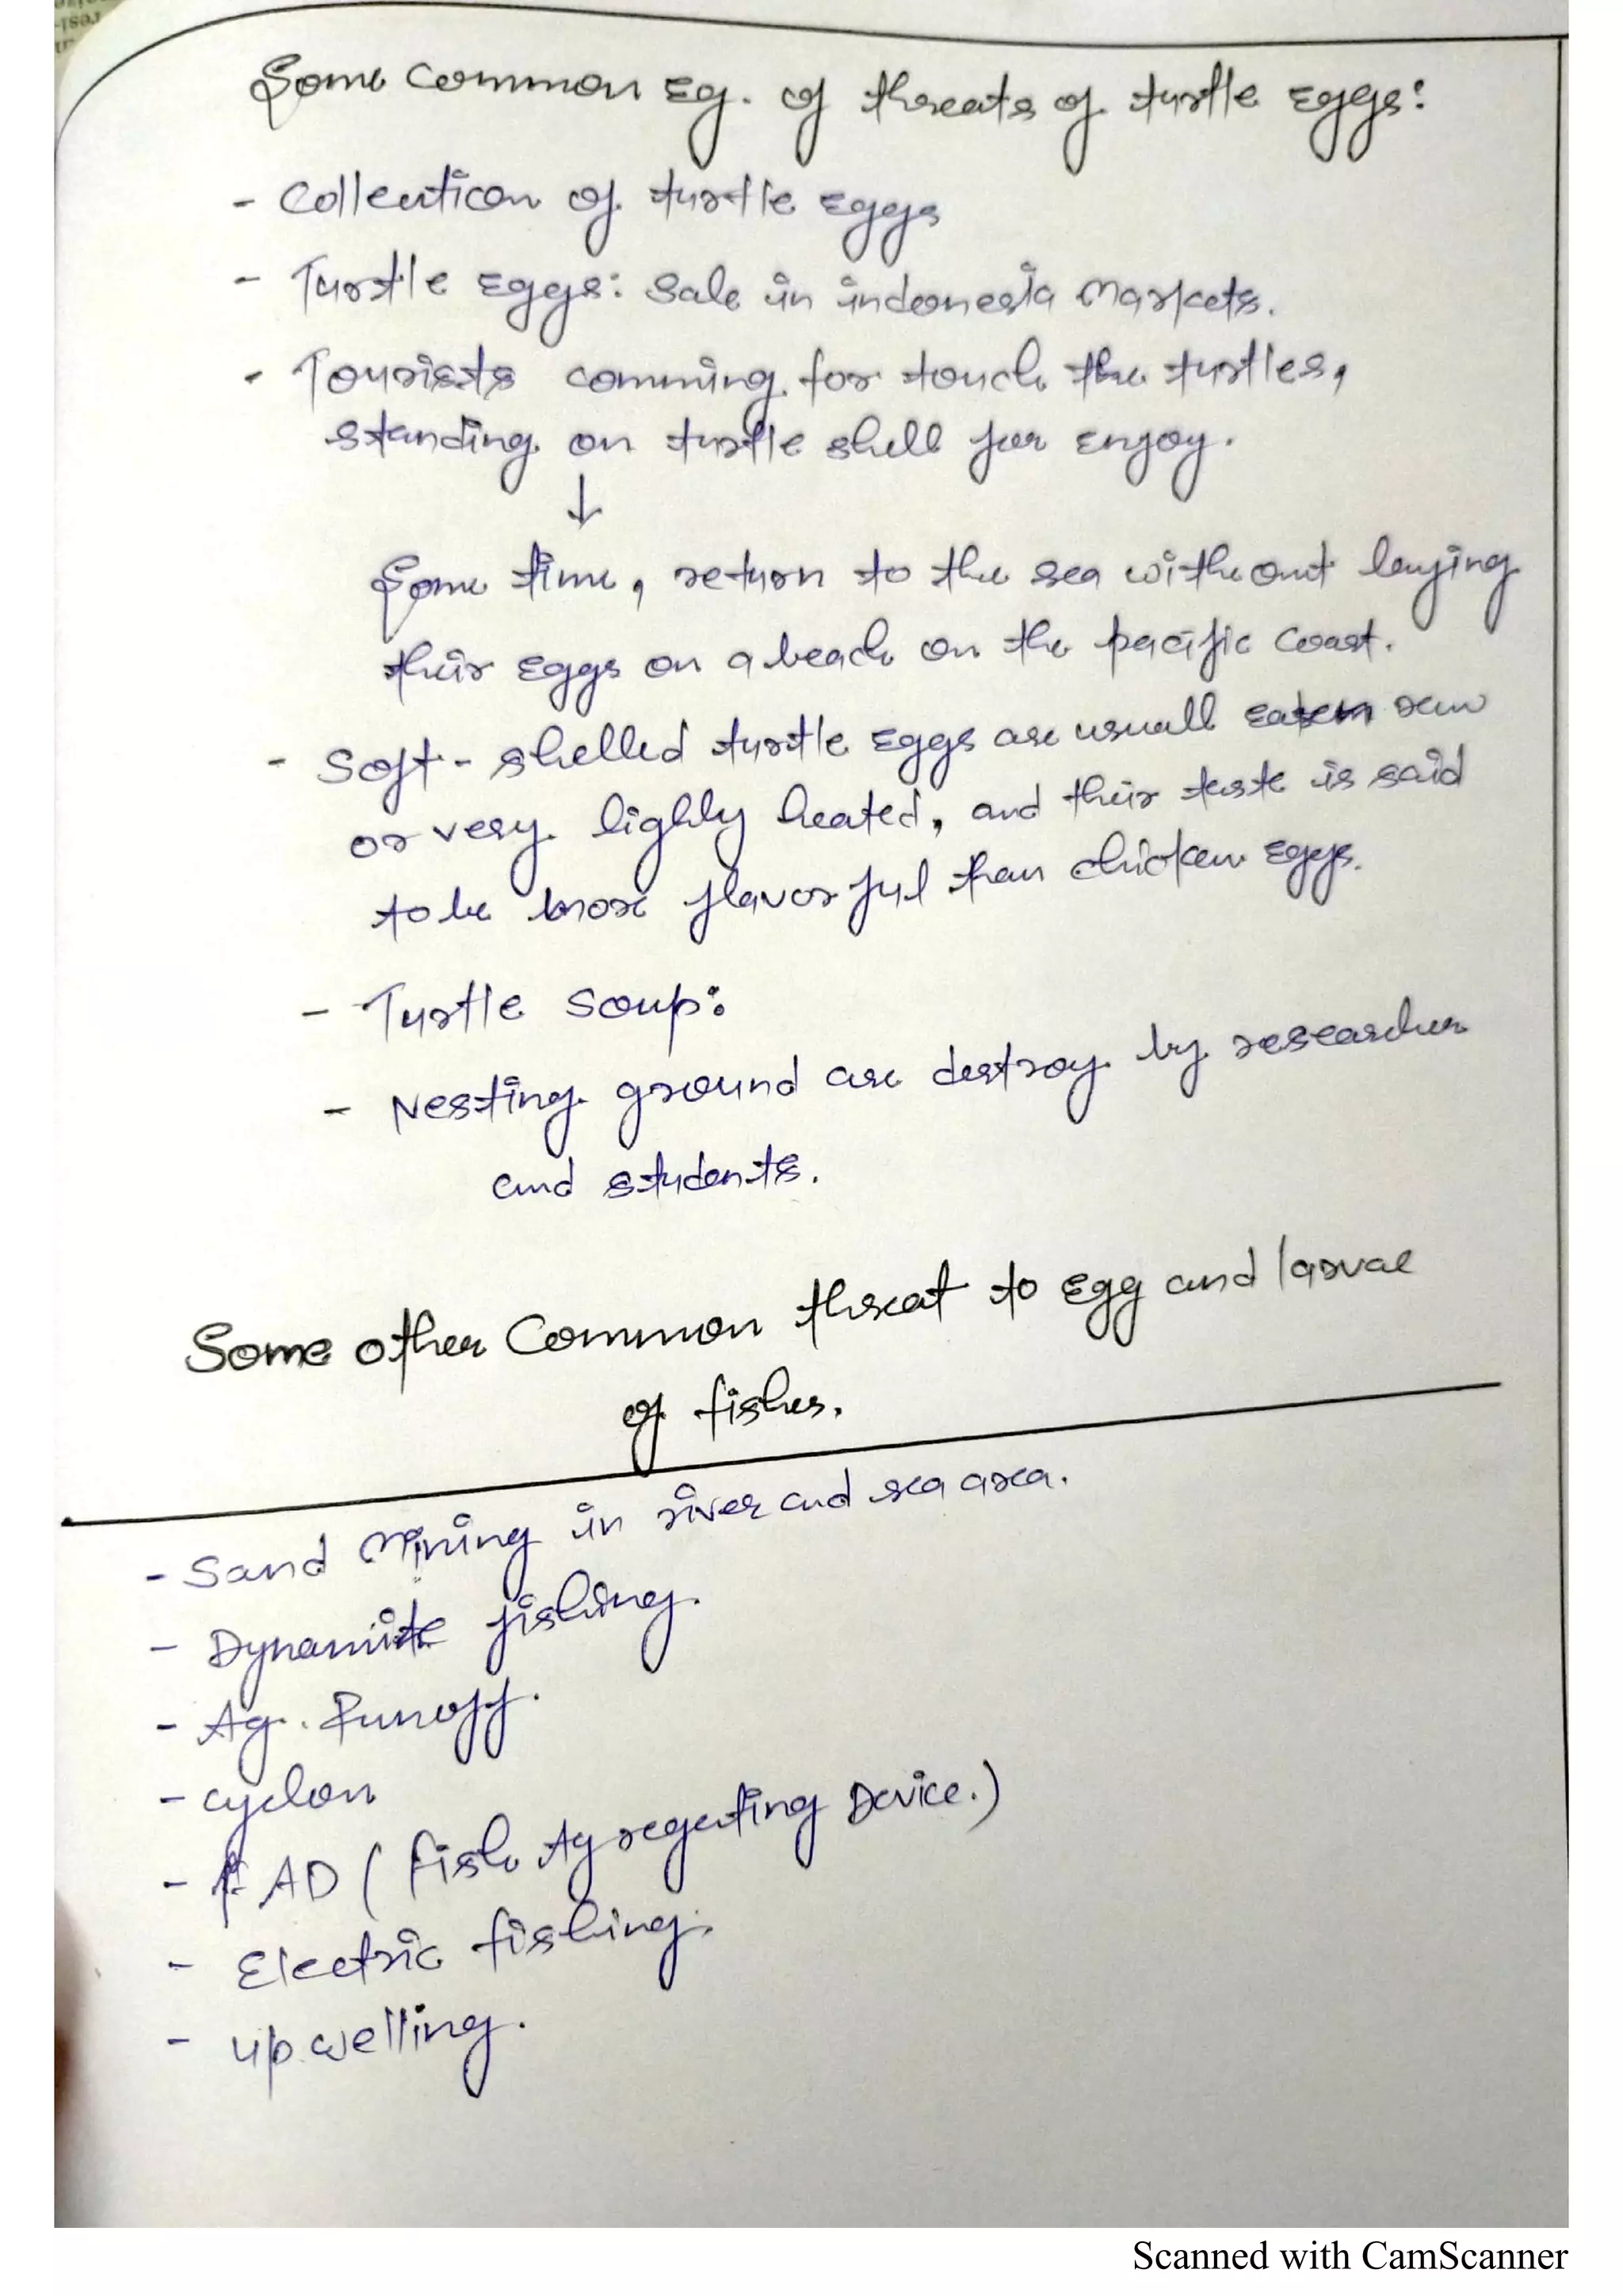 Some Common Eg. of threats of turtle Eggs:
- Collection of turtle Eggs
- Turtle Eggs: Sale in indonesia Markets.
- Tourists comming for touch the turtles,
standing on turtle shell for Enjoy.
↓
Some time, return to the sea without laying
their Eggs on a beach on the pacific Coast.
- Soft-shelled turtle Eggs are usuall eaten raw
or very lighly heated, and their taste is said
to be more flavorful than chicken Eggs.
- Turtle Soup:
- Nesting ground are destroy by researcher
and students.
Some other Common threat to Egg and larvae
of fishes.
- Sand Mining in river and sea area.
- Dynamite fishing.
- Ag. Runoff.
- cyclon
- FAD (Fish Agregating Device.)
- Electric fishing.
- up welling.
Scanned with CamScanner